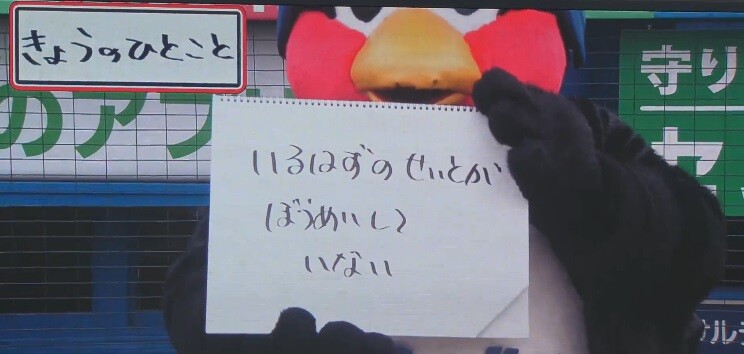 きょうのひとこと
いるはずの せいとが
ぼうめいして
いない
のアナ
守り
セ
ルデ